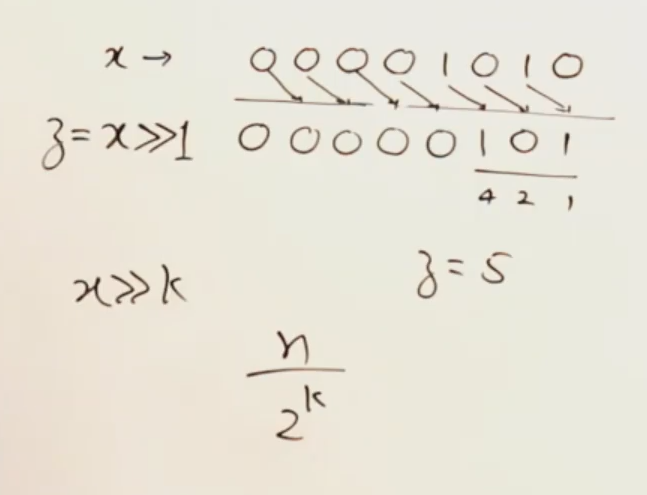 x → 0 0 0 0 1 0 1 0
z = x >> 1 0 0 0 0 0 1 0 1
4 2 1
x >> k
z = 5
n
2^k